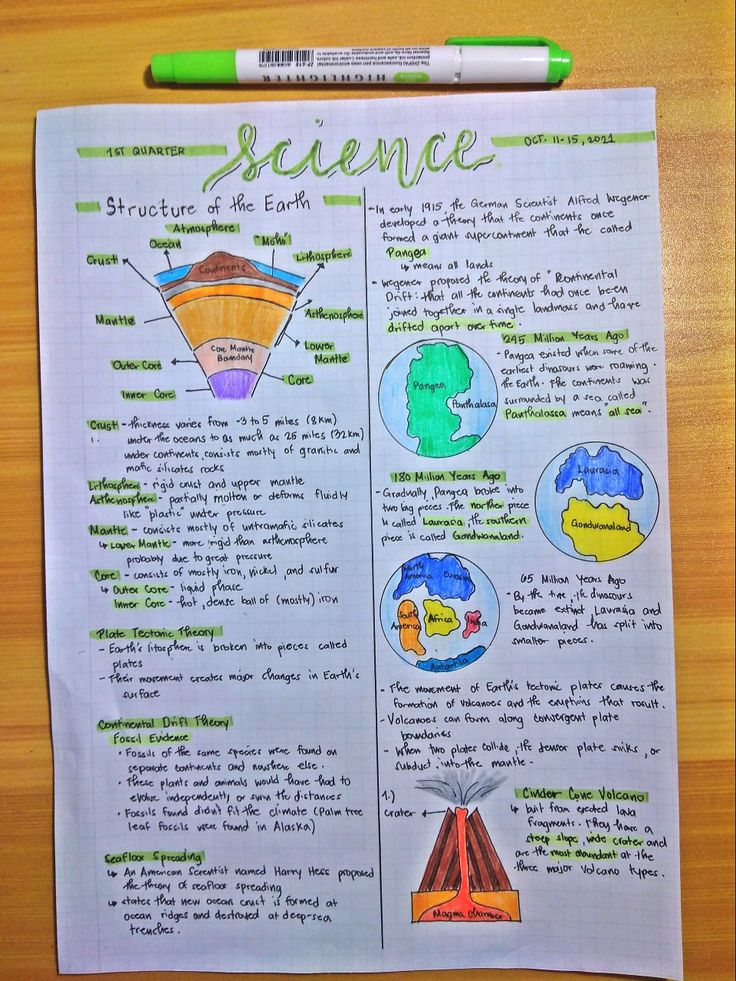 HIGHLIGHTER
ZF-618
1ST QUARTER
science
OCT. 11-15, 2021
Structure of the Earth
Atmosphere
Ocean
"Moho"
Crust
Continents
Lithosphere
Mantle
Asthenosphere
Lower
Mantle
Outer Core
Core Mantle
Boundary
Core
Inner Core
Crust - thickness varies from -3 to 5 miles (8km)
1.
under the oceans to as much as 25 miles (32km)
under continents, consists mostly of granitic and
mafic silicates rocks
Lithosphere - rigid crust and upper mantle
Asthenosphere - partially molten or deforms fluidly
like "plastic" under pressure
Mantle - consists mostly of untramafic silicates
↳ Lower Mantle - more rigid than asthenosphere
probably due to great pressure
Core - consists of mostly iron, nickel, and sulfur
↳ Outer Core - liquid phase
Inner Core - hot, dense ball of (mostly) iron
Plate Tectonic Theory
- Earth's litosphere is broken into pieces called
plates
- Their movement creates major changes in Earth's
surface
Continental Drift Theory
Fossil Evidence
• Fossils of the same species were found on
separate continents and nowhere else.
• These plants and animals would have had to
evolve independently or swim the distances
• Fossils found didn't fit the climate (Palm tree
leaf fossils were found in Alaska)
Seafloor Spreading
↳ An American Scientist named Harry Hess proposed
the theory of seafloor spreading
↳ states that new ocean crust is formed at
ocean ridges and destroyed at deep-sea
trenches.
- In early 1915 the German Scientist Alfred Wegener
developed a theory that the continents once
formed a giant supercontinent that he called
Pangea
↳ means all lands
- Wegener proposed the theory of "Continental
Drift: that all the continents had once been
joined together in a single landmass and have
drifted apart over time.
245 Million Years Ago
- Pangea existed when some of the
earliest dinasours were roaming
the Earth. The continents was
surrounded by a sea called
Panthalassa means "all sea".
Pangea
Panthalasa
180 Million Years Ago
- Gradually, Pangea broke into
two big pieces. The norther piece
is called Laurasia, the southern
piece is called Gondwanaland.
Laurasia
Gondwanaland
North
America
Eurasia
South
America
Africa
India
Antartica
65 Million Years Ago
- By the time, the dinasours
became extinct, Laurasia and
Gondwanaland has split into
smaller pieces.
- The movement of Earth's tectonic plates causes the
formation of volcanoes and the eruptions that result.
- Volcanoes can form along convergent plate
boundaries
- When two plates collide, the denser plate sinks, or
subduct into the mantle.
1.)
Crater
Magma Chamber
Cinder Cone Volcano
↳ buit from erected lava
fragments. They have a
steep slope, wide crater and
are the most abundant at the
three major volcano types.